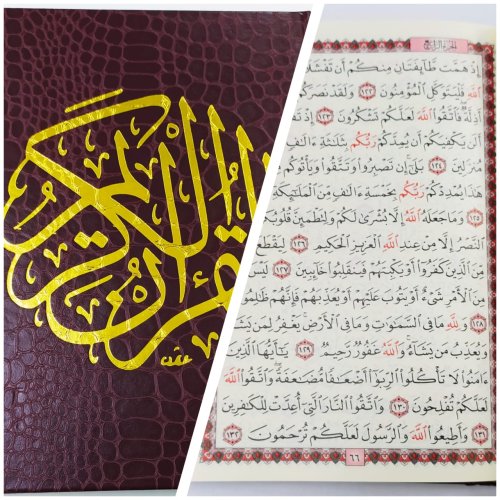 القرآن الكريم
عثمان
الجزء الرابع
إِذْ هَمَّت طَّآئِفَتَانِ مِنكُمْ أَن تَفْشَلَا
ٱللَّهِ فَلْيَتَوَكَّلِ ٱلْمُؤْمِنُونَ ١٢٢ وَلَقَدْ نَصَرَكُمُ
أَذِلَّةٌ فَٱتَّقُوا۟ ٱللَّهَ لَعَلَّكُمْ تَشْكُرُونَ ١٢٣
أَلَن يَكْفِيَكُمْ أَن يُمِدَّكُمْ رَبُّكُم بِثَلَٰثَةِ ءَالَٰفٍ
مُنزَلِينَ ١٢٤ بَلَىٰٓ إِن تَصْبِرُوا۟ وَتَتَّقُوا۟ وَيَأْتُوكُم
هَٰذَا يُمْدِدْكُمْ رَبُّكُم بِخَمْسَةِ ءَالَٰفٍ مِّنَ ٱلْمَلَٰٓئِكَةِ
١٢٥ وَمَا جَعَلَهُ ٱللَّهُ إِلَّا بُشْرَىٰ لَكُمْ وَلِتَطْمَئِنَّ قُلُوبُكُم
ٱلنَّصْرُ إِلَّا مِنْ عِندِ ٱللَّهِ ٱلْعَزِيزِ ٱلْحَكِيمِ ١٢٦ لِيَقْطَعَ
مِّنَ ٱلَّذِينَ كَفَرُوٓا۟ أَوْ يَكْبِتَهُمْ فَيَنقَلِبُوا۟ خَآئِبِينَ ١٢٧ لَيْسَ
مِنَ ٱلْأَمْرِ شَىْءٌ أَوْ يَتُوبَ عَلَيْهِمْ أَوْ يُعَذِّبَهُمْ فَإِنَّهُمْ ظَٰلِمُونَ
١٢٨ وَلِلَّهِ مَا فِى ٱلسَّمَٰوَٰتِ وَمَا فِى ٱلْأَرْضِ يَغْفِرُ لِمَن يَشَآءُ
وَيُعَذِّبُ مَن يَشَآءُ وَٱللَّهُ غَفُورٌ رَّحِيمٌ ١٢٩ يَٰٓأَيُّهَا ٱلَّذِينَ
ءَامَنُوا۟ لَا تَأْكُلُوا۟ ٱلرِّبَوٰٓا۟ أَضْعَٰفًا مُّضَٰعَفَةً وَٱتَّقُوا۟ ٱللَّهَ
لَعَلَّكُمْ تُفْلِحُونَ ١٣٠ وَٱتَّقُوا۟ ٱلنَّارَ ٱلَّتِىٓ أُعِدَّتْ لِلْكَٰفِرِينَ
١٣١ وَأَطِيعُوا۟ ٱللَّهَ وَٱلرَّسُولَ لَعَلَّكُمْ تُرْحَمُونَ ١٣٢
٦٦